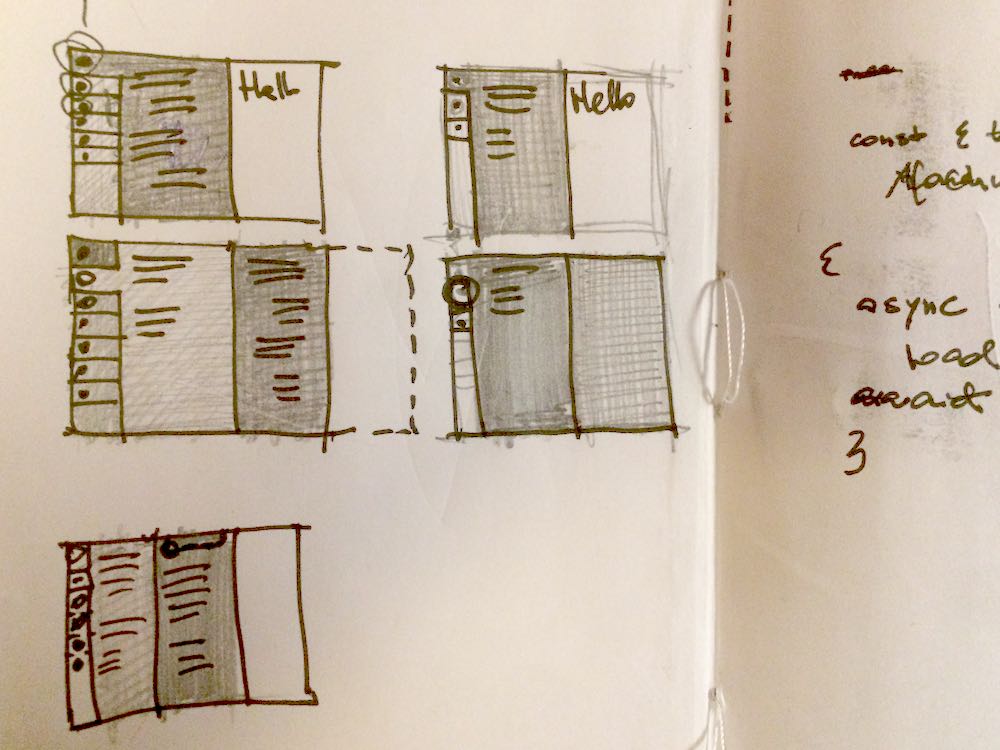 Hello
Hello
const {
{
async
load
await
}